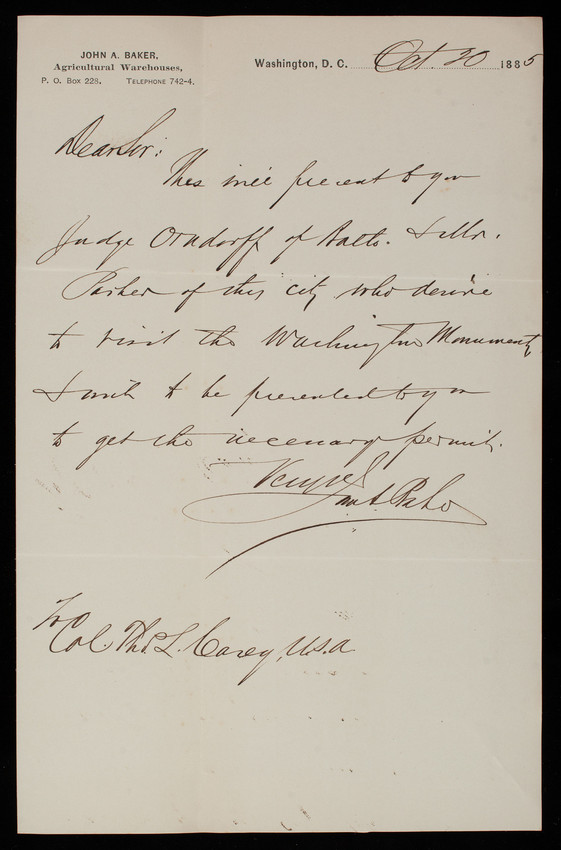 JOHN A. BAKER,
Agricultural Warehouses,
P. O. Box 228. Telephone 742-4.
Washington, D. C. Oct. 30 1885
Dear Sir:
This will present to you
Judge Orndorff of Balto. & Mr.
Parker of this city who desire
to visit the Washington Monument,
& wish to be presented by you
to get the necessary permit.
Very resp
Jno A. Baker
To
Col. Tho. L. Casey, U.S.A